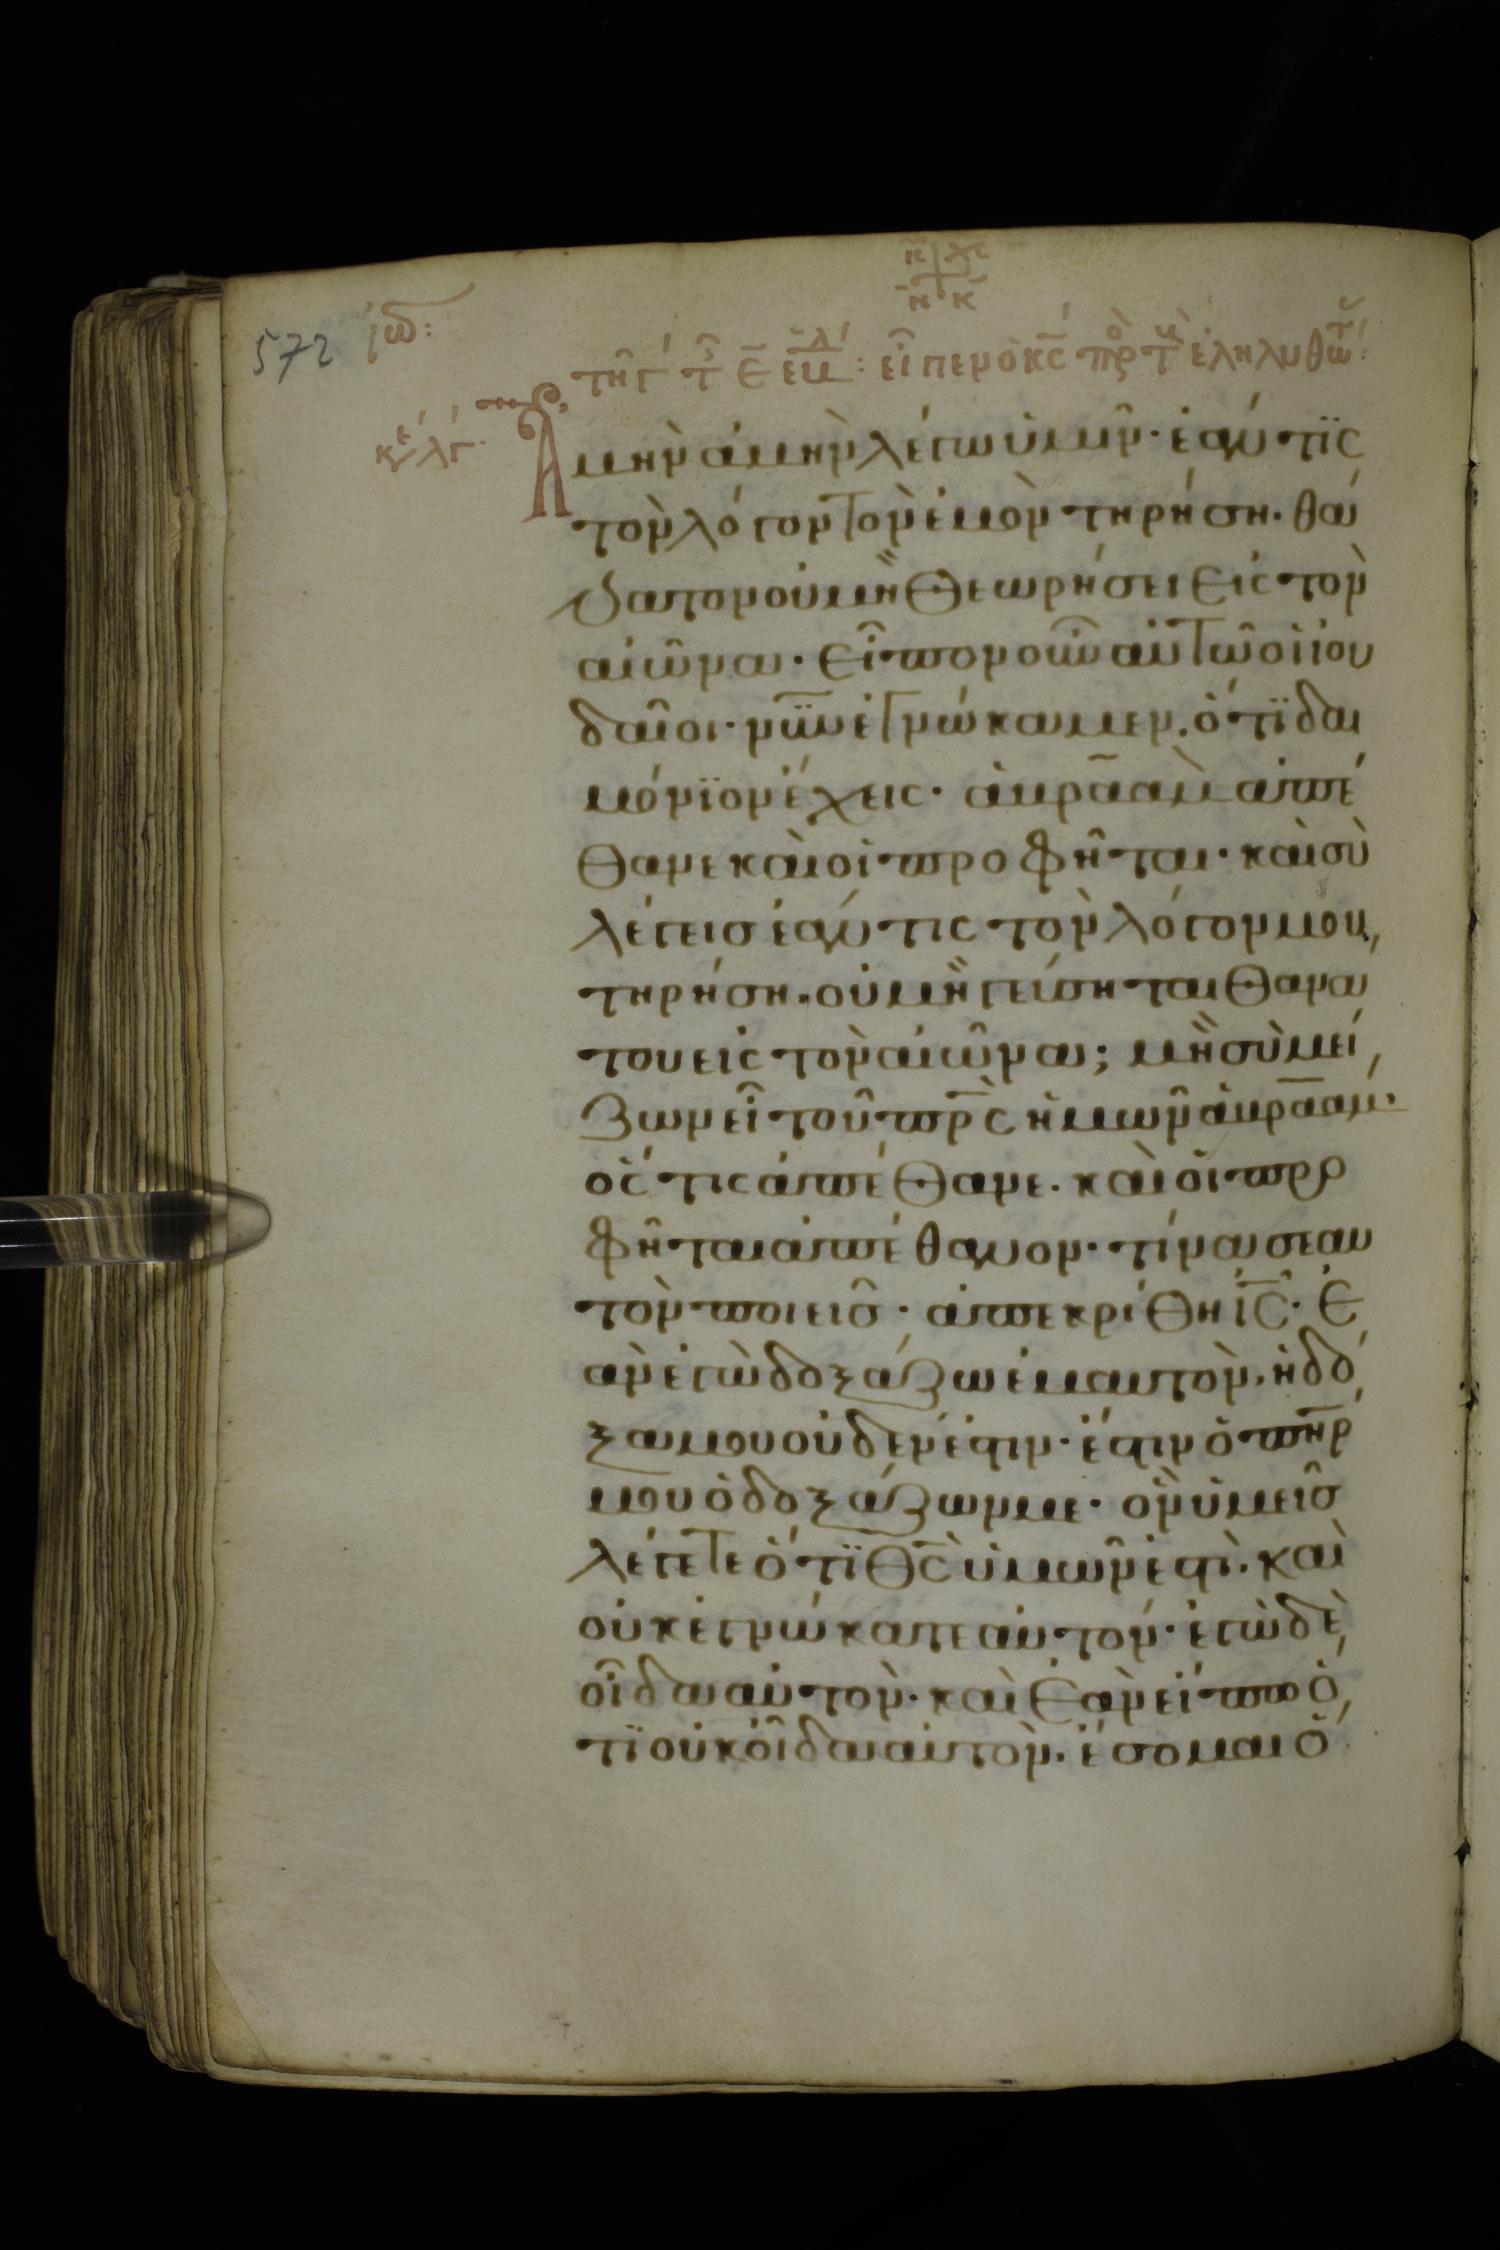 ις χς
νι κα
572 ἰω:
τῆ γ τ ε ἑβδ: εἶπεν ὁ κς πρς τ ἐληλυθότ:
κε λγ.
Ἀμὴν ἀμὴν λέγω ὑμῖν· ἐάν τϊς
τὸν λόγον τὸν ἐμὸν τηρήση· θά
νατον οὐ μὴ θεωρήσει εἰς τὸν
αἰῶνα· εἶπον οὖν αὐτῶ οἱ ἰου
δαῖοι· νῦν ἐγνώκαμεν. ὅτϊ δαι
μόνϊον ἔχεις· ἀβρααμ ἀπέ
θανε καὶ οἱ προφῆται· καὶ σὺ
λέγεισ ἐάν τις τὸν λόγον μου,
τηρήση. οὐ μὴ γεύσηται θανά
του εἰς τὸν αἰῶνα; μὴ σὺ μεί
ζων εἶ τοῦ πρς ἡμῶν ἀβρααμ·
ὅς τις ἀπέθανε· καὶ οἱ προ
φῆται ἀπέθανον· τίνα σεαυ
τὸν ποιεῖσ· ἀπεκρίθη ις· ἐ
ὰν ἐγὼ δοξάζω ἐμαυτὸν. ἡ δό
ξα μου οὐδέν ἐστιν· ἔστιν ὁ πηρ
μου ὁ δοξάζων με· ὃν ὑμεῖσ
λέγετε ὅτϊ θς ὑμῶν ἐστὶ. καὶ
οὐκ ἐγνώκατε αὐτόν· ἐγὼ δὲ
οἶδα αὐτὸν· καὶ ἐὰν εἴπω ὅ
τϊ οὐκ οἶδα αὐτὸν. ἔσομαι ὅ